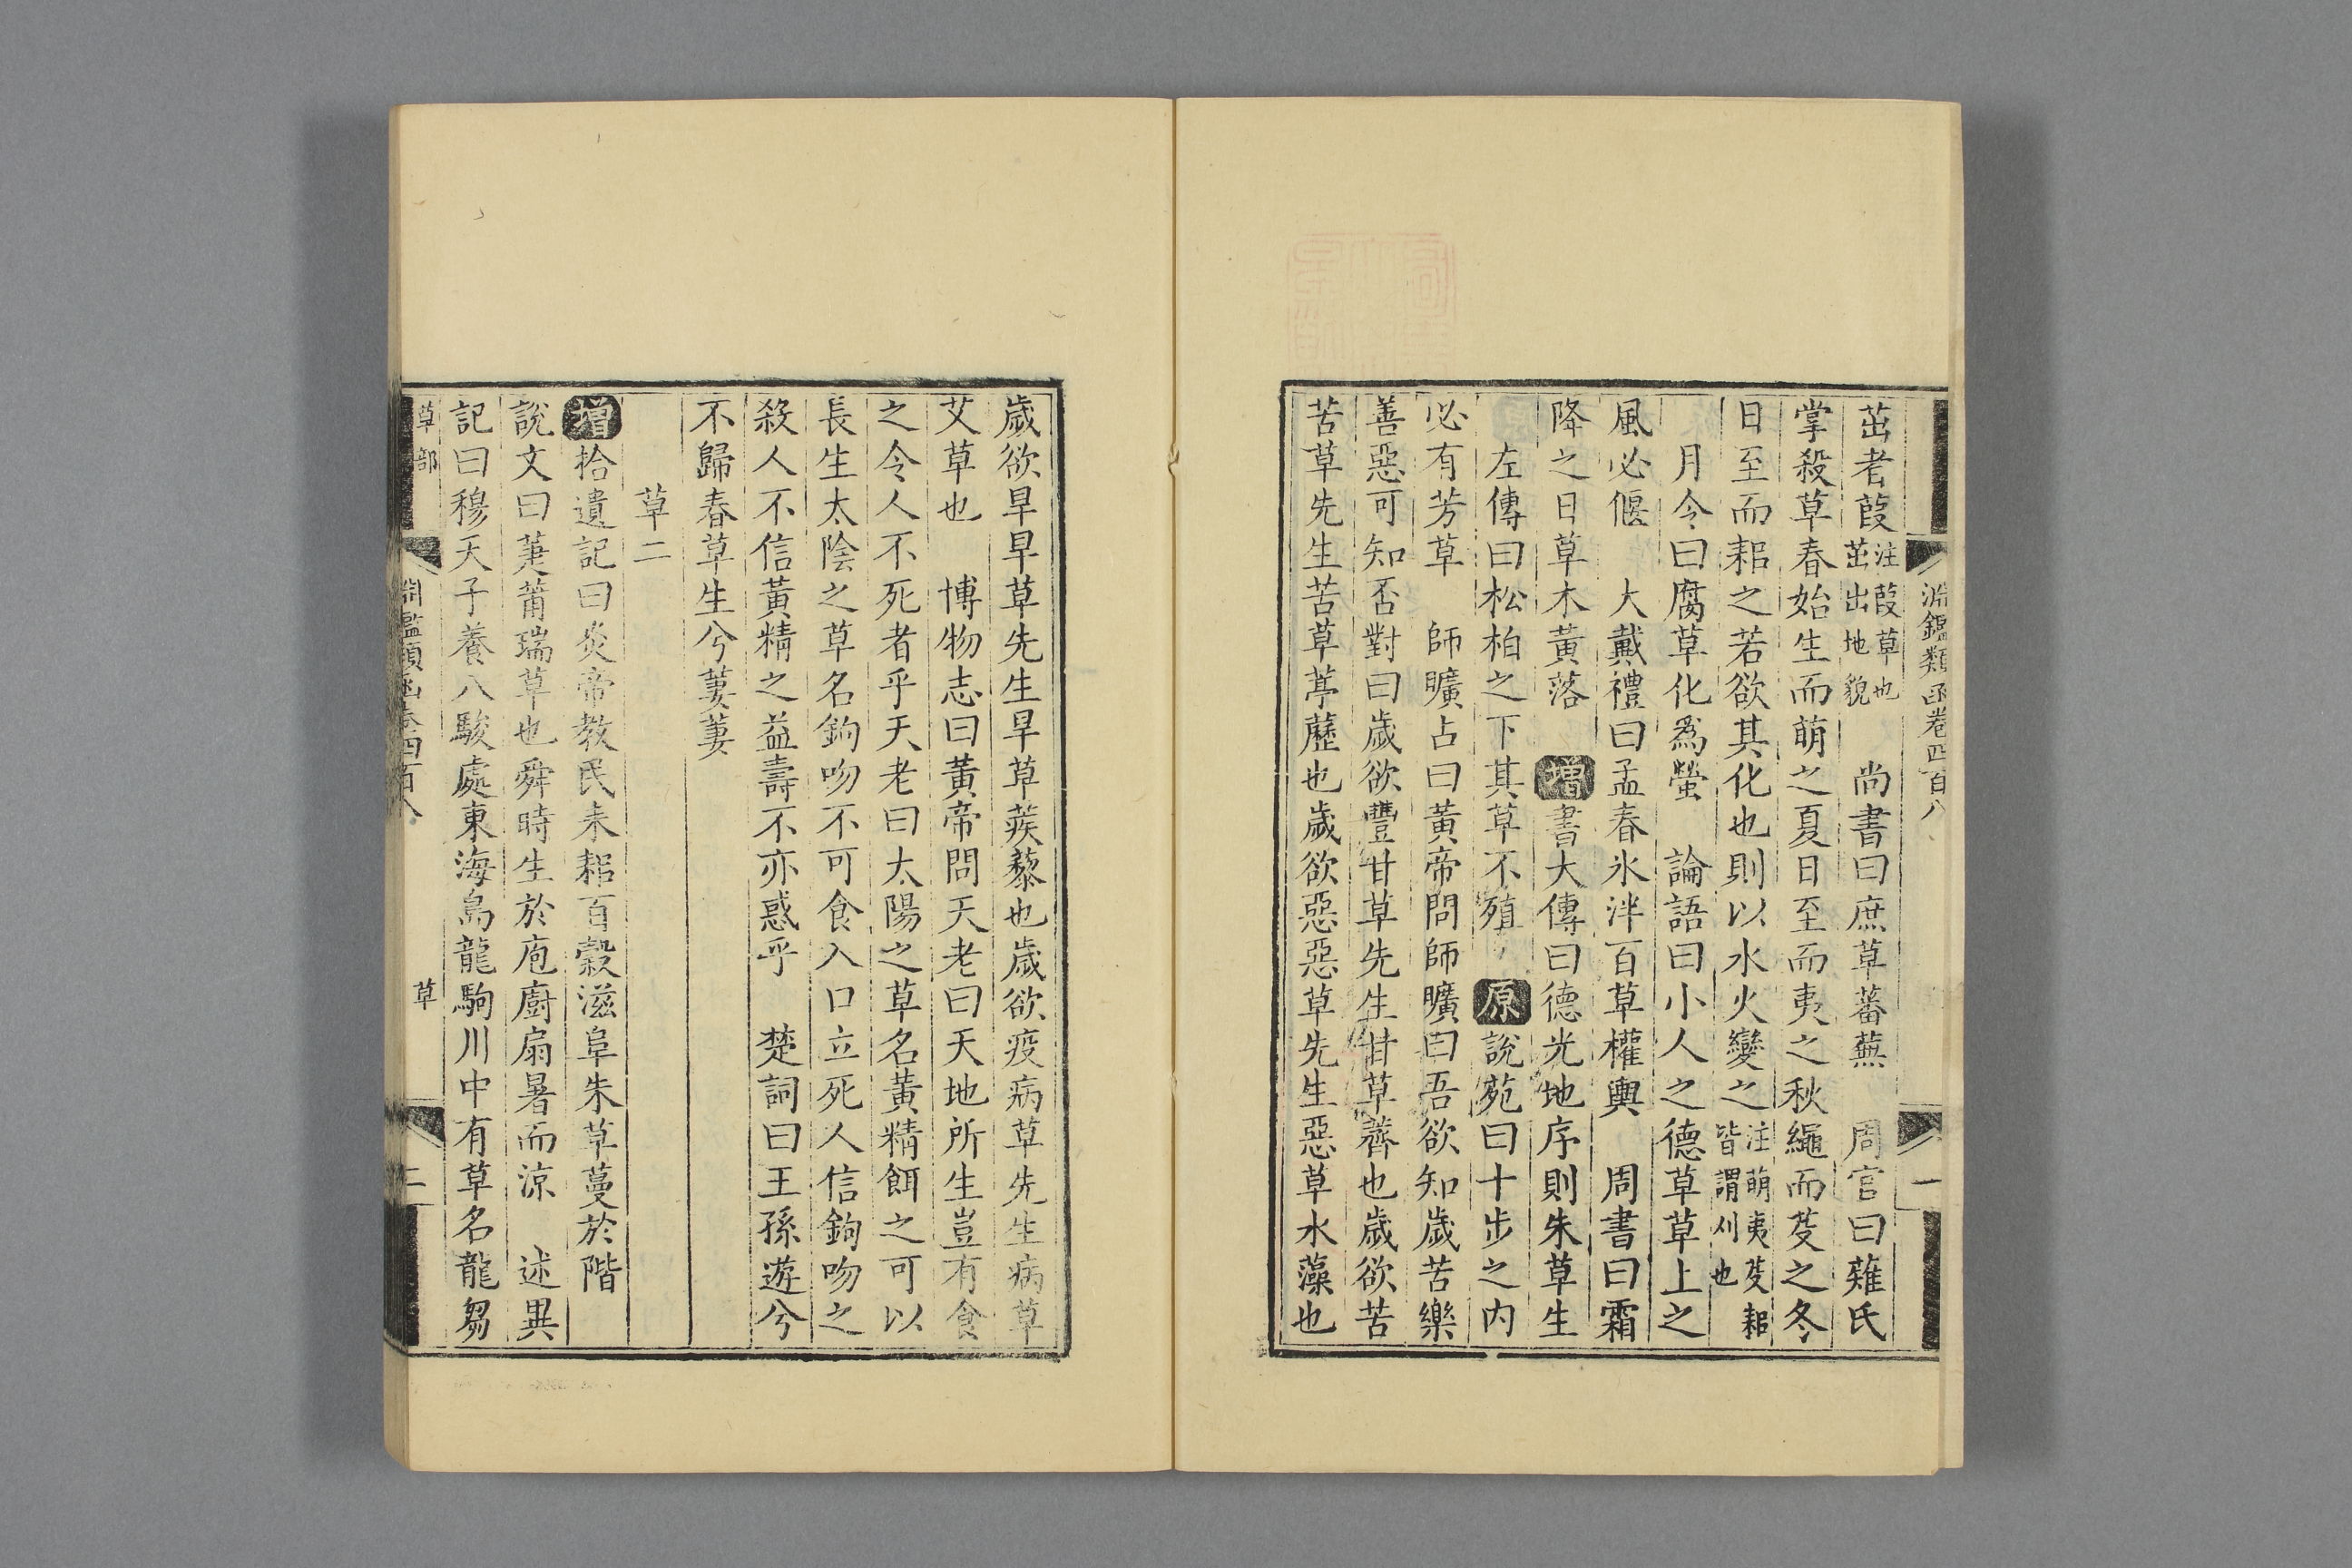 淵鑑類函卷四百八
一
茁者葭注葭草也茁出地貌　尚書曰庶草蕃蕪　周官曰薙氏
掌殺草春始生而萌之夏日至而夷之秋繩而芟之冬
日至而耜之若欲其化也則以水火變之注萌夷芟耜皆謂刈也
月令曰腐草化爲螢　論語曰小人之德草草上之
風必偃　大戴禮曰孟春氷泮百草權輿　周書曰霜
降之日草木黃落　增書大傳曰德光地序則朱草生
左傳曰松柏之下其草不殖　原說苑曰十步之內
必有芳草　師曠占曰黃帝問師曠曰吾欲知歲苦樂
善惡可知否對曰歲欲豐甘草先生甘草薺也歲欲苦
苦草先生苦草葶藶也歲欲惡惡草先生惡草水藻也
歲欲旱旱草先生旱草蒺藜也歲欲疫病草先生病草
艾草也　博物志曰黃帝問天老曰天地所生豈有食
之令人不死者乎天老曰太陽之草名黃精餌之可以
長生太陰之草名鉤吻不可食入口立死人信鉤吻之
殺人不信黃精之益壽不亦惑乎　楚詞曰王孫遊兮
不歸春草生兮萋萋
草二
增拾遺記曰炎帝教民耒耜百穀滋阜朱草蔓於階
說文曰萐莆瑞草也舜時生於庖廚扇暑而涼　述異
記曰穆天子養八駿處東海島龍駒川中有草名龍芻
草部
淵鑑類函卷四百八
草
二